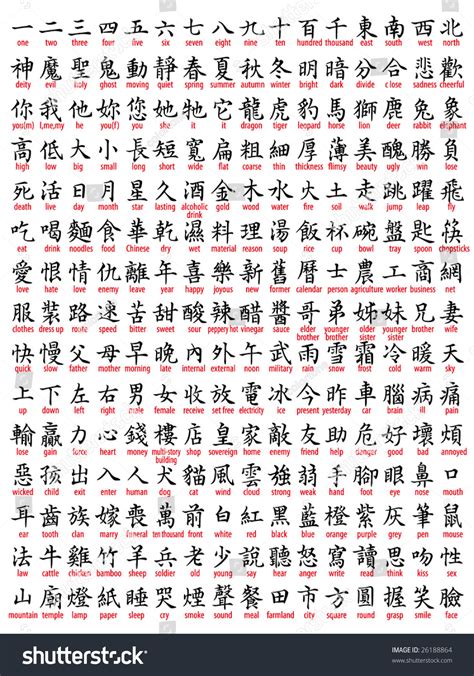 一 二 三 四 五 六 七 八 九 十 百 千 東 南 西 北
one two three four five six seven eight nine ten hundred thousand east south west north
神 魔 聖 鬼 動 靜 春 夏 秋 冬 明 暗 分 合 悲 歡
deity evil holy ghost moving quiet spring summer autumn winter bright dark divide close sadness cheerful
你 我 他 妳 您 她 牠 它 龍 虎 豹 馬 獅 鹿 兔 象
you(m) I,me,my he you(f) you she it it dragon tiger leopard horse lion deer rabbit elephant
高 低 大 小 長 短 寬 扁 粗 細 厚 薄 美 醜 勝 負
high low big small long short wide flat coarse thin thickness flimsy beauty ugly win lose
死 活 日 月 星 久 酒 金 木 水 火 土 走 跳 躍 飛
death live day month star long lasting alcoholic drink gold wood water fire soil walk jump leap fly
吃 喝 麵 食 華 乾 濕 料 理 湯 飯 杯 碗 盤 匙 筷
eat drink noodles food Chinese dry wet material reason soup rice cup bowl tray spoon chopsticks
愛 恨 情 仇 離 年 喜 樂 新 舊 曆 士 農 工 商 網
love hate love enemy leave years happy joyous new former calendar person agriculture worker business net
服 裝 路 速 苦 甜 酸 辣 醋 醬 哥 弟 姊 妹 兄 妻
clothes dress up route speed bitter sweet sour peppery hot vinegar sauce elder brother younger brother elder sister younger sister elder brother wife
快 慢 父 母 早 晚 內 外 午 武 雨 雪 霜 冷 暖 天
quick slow father mother morning late internal external noon military rain snow frost cold warm sky
上 下 左 右 男 女 收 放 電 冰 今 昨 車 腦 病 痛
up down left right male female receive set free electricity ice present yesterday car brain ill pain
輸 贏 力 心 錢 樓 店 皇 家 敵 友 助 危 好 壞 煩
lose gain force heart money multi-story building shop sovereign home enemy friend help danger good bad annoyed
惡 孩 出 入 人 犬 貓 風 雲 強 弱 手 腳 眼 鼻 口
wicked child exit enter human dog cat wind cloud strong weak hand foot eye nose mouth
耳 齒 族 嫁 喪 萬 前 白 紅 黑 藍 橙 紫 灰 筆 鼠
ear tooth clan marry funeral ten thousand front white red black blue orange purple grey pen mouse
法 牛 雞 竹 羊 兵 老 少 說 聽 怒 寫 讀 思 吻 性
law cattle chicken bamboo sheep soldier old young say hear anger write read think kiss sex
山 廟 燈 紙 睡 哭 煙 聲 餐 田 市 方 圓 握 笑 臉
mountain temple lamp paper sleep cry smoke sound meal farmland city square round grasp smile face
shutterstock
IMAGE ID: 26188864
www.shutterstock.com